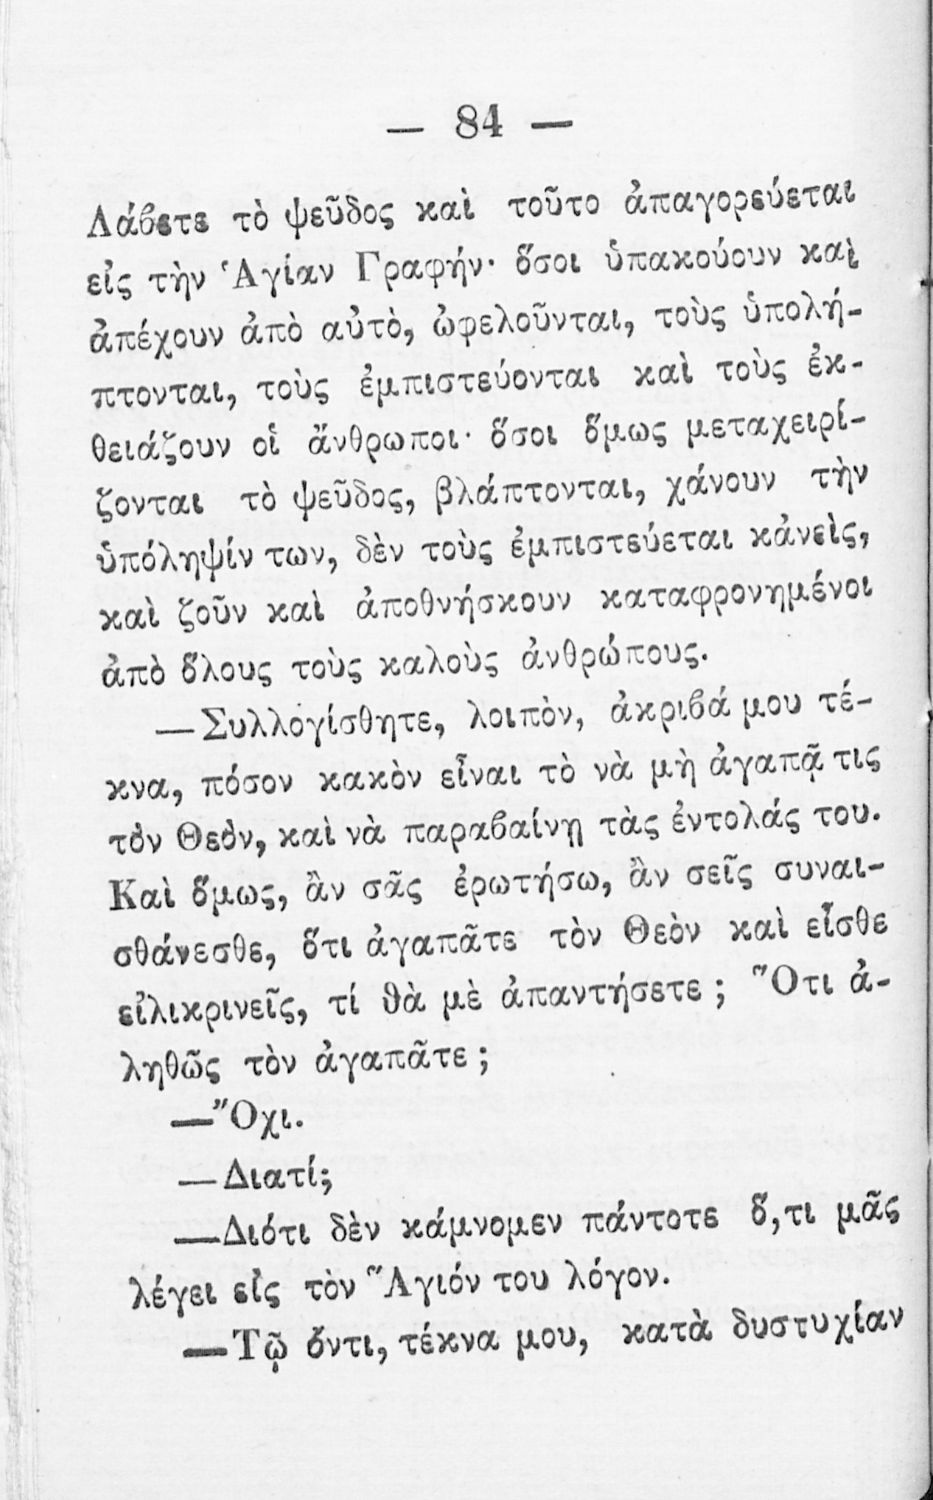 — 84 —
Λάβετε τὸ ψεῦδος καὶ τοῦτο ἀπαγορεύεται
εἰς τὴν Ἁγίαν Γραφήν· ὅσοι ὑπακούουν καὶ
ἀπέχουν ἀπὸ αὐτὸ, ὠφελοῦνται, τοὺς ὑπολή-
πτονται, τοὺς ἐμπιστεύονται καὶ τοὺς ἐκ-
θειάζουν οἱ ἄνθρωποι· ὅσοι ὅμως μεταχειρί-
ζονται τὸ ψεῦδος, βλάπτονται, χάνουν τὴν
ὑπόληψίν των, δὲν τοὺς ἐμπιστεύεται κἀνεὶς,
καὶ ζοῦν καὶ ἀποθνήσκουν καταφρονημένοι
ἀπὸ ὅλους τοὺς καλοὺς ἀνθρώπους.
—Συλλογίσθητε, λοιπὸν, ἀκριβά μου τέ-
κνα, πόσον κακὸν εἶναι τὸ νὰ μὴ ἀγαπᾷ τις
τὸν Θεὸν, καὶ νὰ παραβαίνῃ τὰς ἐντολάς του.
Καὶ ὅμως, ἂν σᾶς ἐρωτήσω, ἂν σεῖς συναι-
σθάνεσθε, ὅτι ἀγαπᾶτε τὸν Θεὸν καὶ εἶσθε
εἰλικρινεῖς, τί θὰ μὲ ἀπαντήσετε; Ὅτι ἀ-
ληθῶς τὸν ἀγαπᾶτε;
—Ὄχι.
—Διατί;
—Διότι δὲν κάμνομεν πάντοτε ὅ,τι μᾶς
λέγει εἰς τὸν Ἅγιόν του λόγον.
—Τῷ ὄντι, τέκνα μου, κατὰ δυστυχίαν